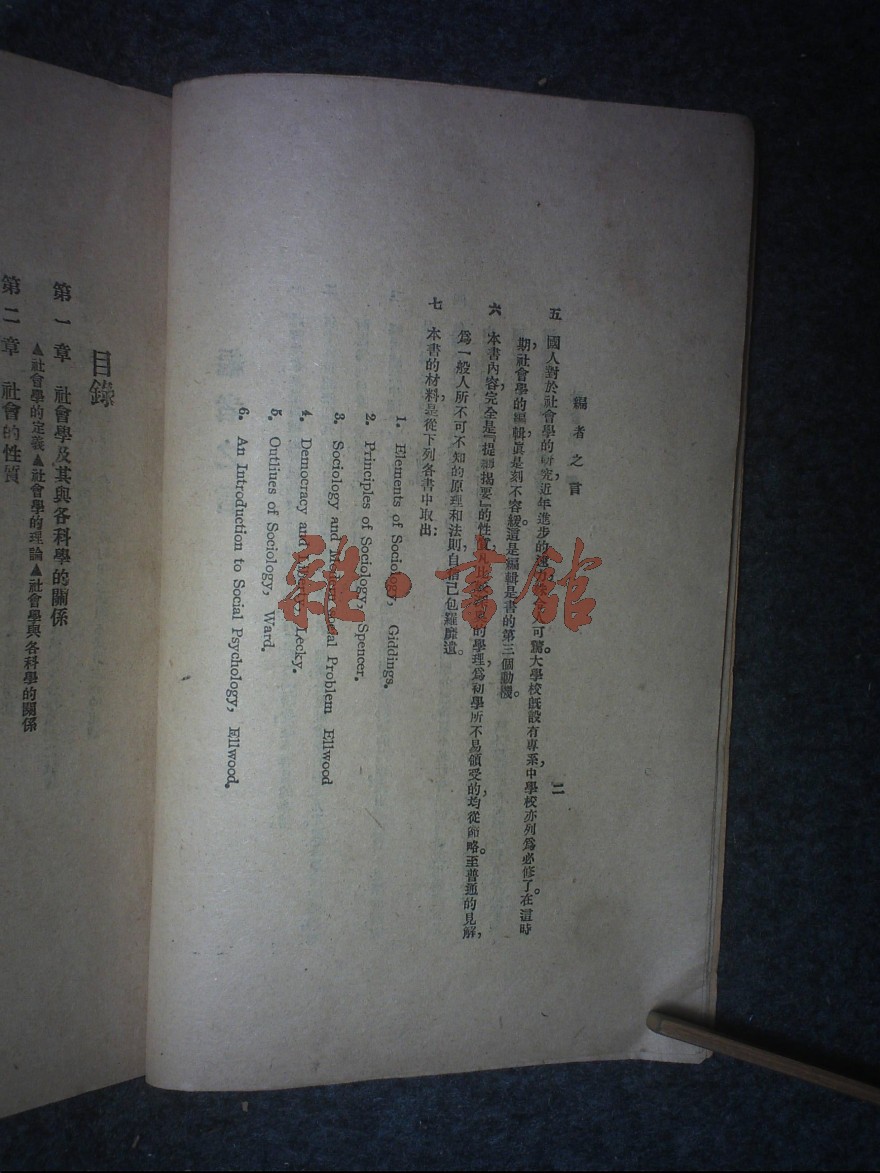 編者之言
二
五 國人對於社會學的研究，近年進步的速力
可驚。大學校既設有專系，中學校亦列為必修了。在這時
期，社會學的編輯，眞是刻不容緩。這是編輯是書的第三個動機。
六 本書內容完全是『提綱揭要』的性質，凡比
的學理，爲初學所不易領受的，均從節略。至普通的見解，
爲一般人所不可不知的原理和法則，自信已包羅靡遺。
七 本書的材料，是從下列各書中取出：
1. Elements of Sociology, Giddings.
2. Principles of Sociology, Spencer.
3. Sociology and Modern Social Problem Ellwood
4. Democracy and Liberty, Lecky.
5. Outlines of Sociology, Ward.
6. An Introduction to Social Psychology, Ellwood.
目錄
第一章 社會學及其與各科學的關係
▲社會學的定義▲社會學的理論▲社會學與各科學的關係
第二章 社會的性質
雜·書館